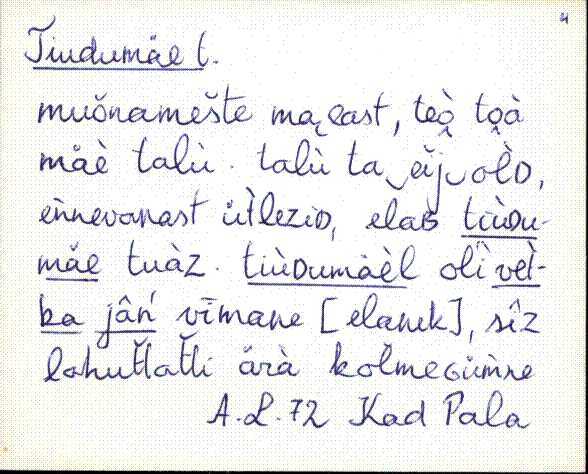 4
Tiudumäe t.
muŏnamešte ma̮east, teò̭ to̭à
mǻè talù. talù ta‿ĕĭj‿olD,
eǹnevanast üt̀leziD, elaB tiùdu-
mǟe tuàz. tiùDumäèl olì vel̀-
ka jâń vīmane [elanek], sîz
lahut̆lat̆li ärà kolmeGüm̀ne
A. L. 72 Kad Pala